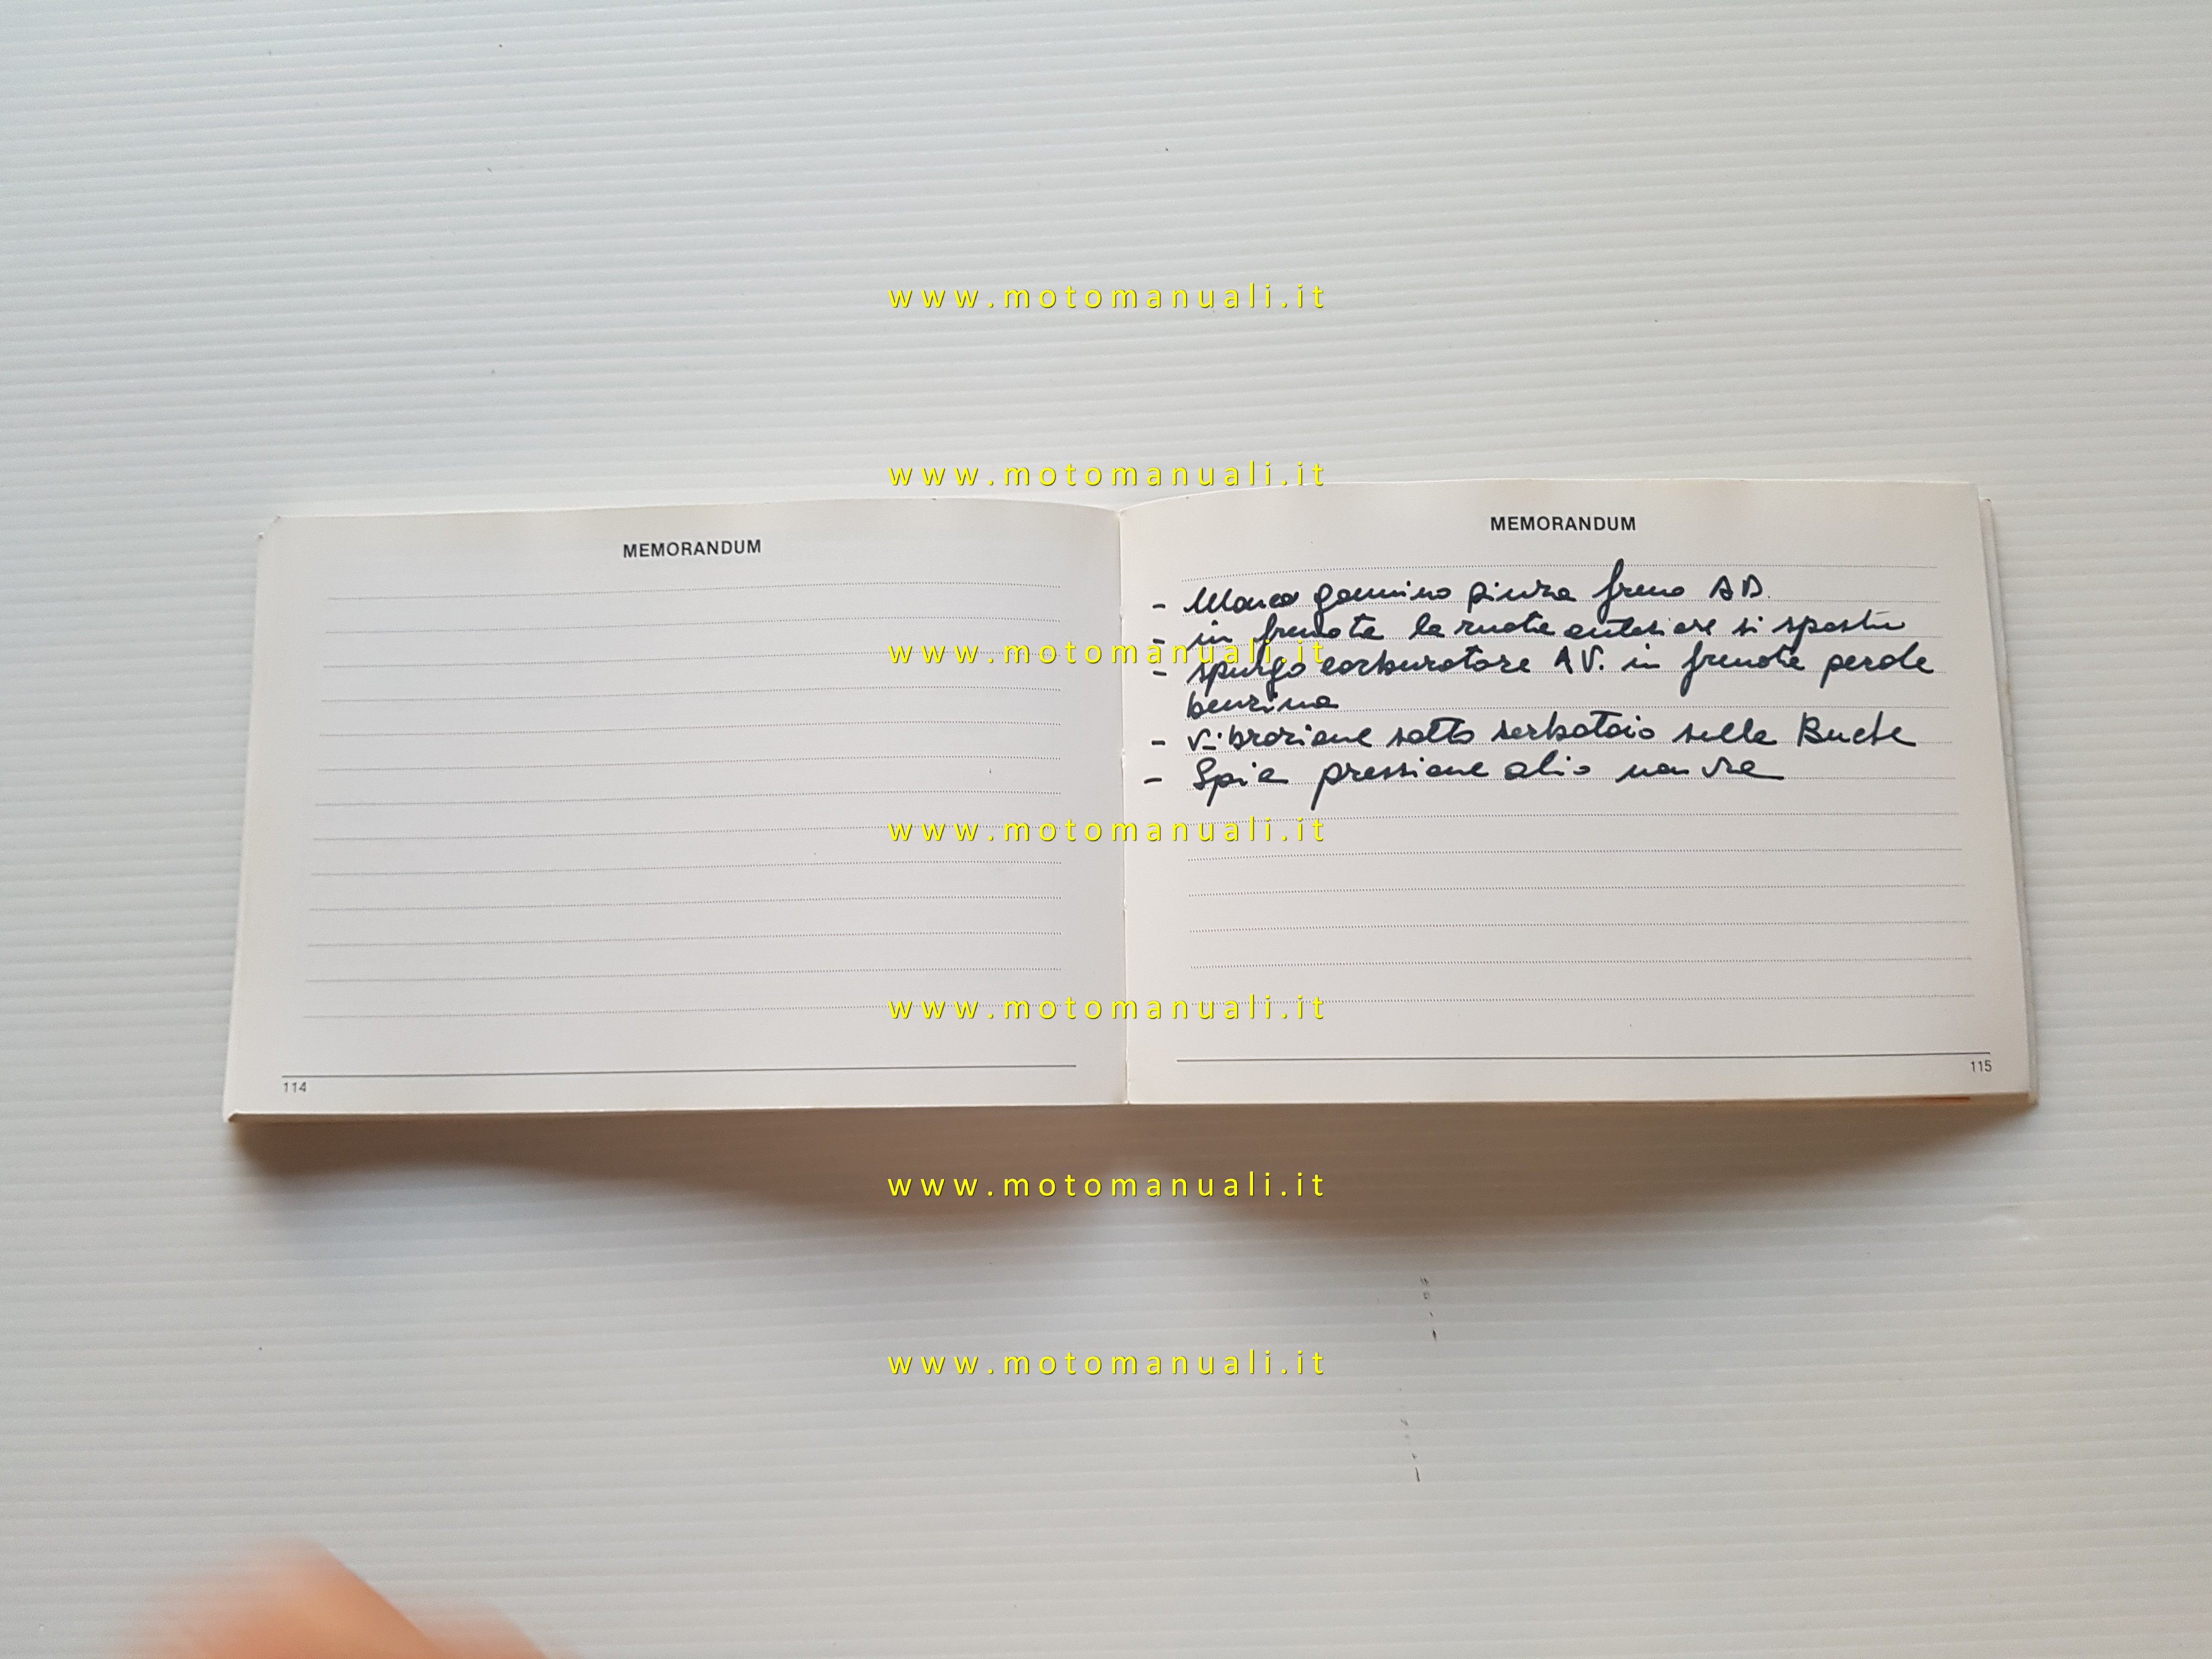 www.motomanuali.it
www.motomanuali.it
MEMORANDUM
114
MEMORANDUM
- Manca gommino pinza freno AD.
- in frenata la ruota anteriore si sposta
www.motomanuali.it
- spurgo carburatore AV. in frenata perde
benzina
- Vibrazione sotto serbatoio sulle Buche
- Spia pressione olio non va
www.motomanuali.it
www.motomanuali.it
115
www.motomanuali.it
www.motomanuali.it